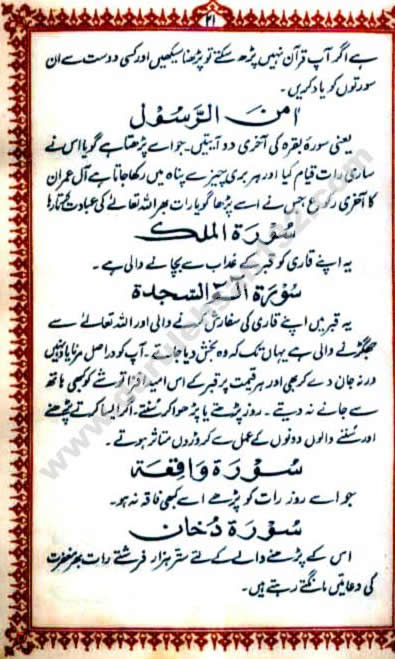 ۲۱
ہے اگر آپ قرآن نہیں پڑھ سکتے تو پڑھنا سیکھیں اور کسی دوست سے ان
سورتوں کو یاد کریں۔
اٰمن الرّسول
یعنی سورہ بقرہ کی آخری دو آیتیں۔ جو اسے پڑھتا ہے گویا اس نے
ساری رات قیام کیا اور ہر بری چیز سے پناہ میں رکھا جاتا ہے آل عمران
کا آخری رکوع جس نے اسے پڑھا گویا رات بھر اللہ تعالےٰ کی عبادت کرتا رہا
سورۃ الملك
یہ اپنے قاری کو قبر کے عذاب سے بچانے والی ہے۔
سورۃ الٓمّ السجدۃ
یہ قبر میں اپنے قاری کی سفارش کرنے والی اور اللہ تعالےٰ سے
جھگڑنے والی ہے یہاں تک کہ وہ بخش دیا جائے۔ آپ کو دراصل مرنا یاد نہیں
ورنہ جان دے کر بھی اور ہر قیمت پر قبر کے اس امید افزا کو کبھی ہاتھ
سے جانے نہ دیتے۔ روز پڑھتے یا پڑھوا کر سنتے۔ اگر ایسا کرتے پڑھنے
اور سننے والوں دونوں کے عمل سے کروڑوں متاثر ہوتے۔
سورۃ واقعۃ
جو اسے روز رات کو پڑھے اسے کبھی فاقہ نہ ہو۔
سورۃ دخان
اس کے پڑھنے والے کے لئے ستر ہزار فرشتے رات بھر مغفرت
کی دعائیں مانگتے رہتے ہیں۔